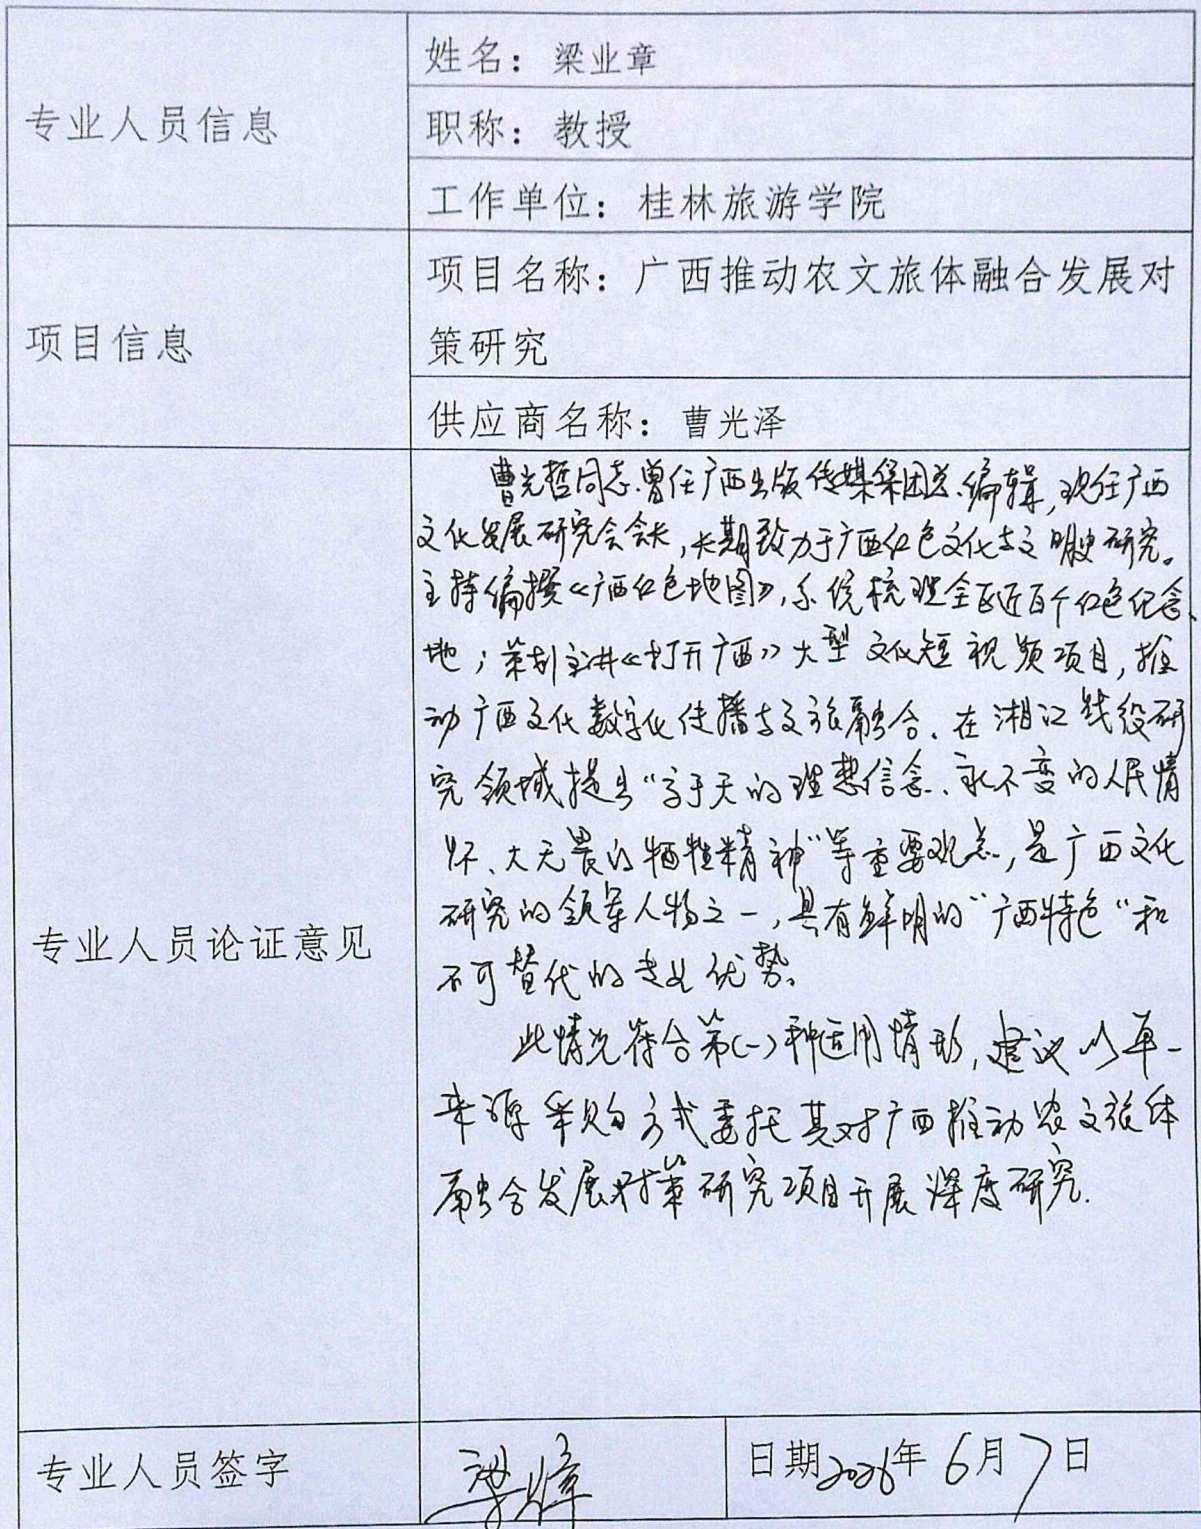 专业人员信息
姓名：梁业章
职称：教授
工作单位：桂林旅游学院
项目信息
项目名称：广西推动农文旅体融合发展对
策研究
供应商名称：曹光泽
专业人员论证意见
曹光哲同志曾任广西出版传媒集团总编辑，现任广西
文化发展研究会会长，长期致力于广西红色文化与文明史研究。
主持编撰《广西红色地图》，系统梳理全区近百个红色纪念
地；策划主讲《打开广西》大型文化短视频项目，推
动广西文化数字化传播与文旅融合、在湘江战役研
究领域提出“高于天的理想信念、永不变的人民情
怀、大无畏的牺牲精神”等重要观点，是广西文化
研究的领军人物之一，具有鲜明的“广西特色“和
不可替代的专业优势。
此情况符合第(一)种适用情形，建议以单一
来源采购方式委托其对广西推动农文旅体
融合发展对策研究项目开展深度研究.
专业人员签字
梁业章
日期2026年6月7日